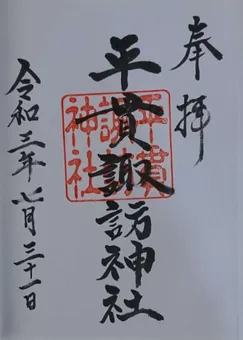 奉拝
平貫諏訪神社
平貫諏訪神社
令和三年七月三十一日